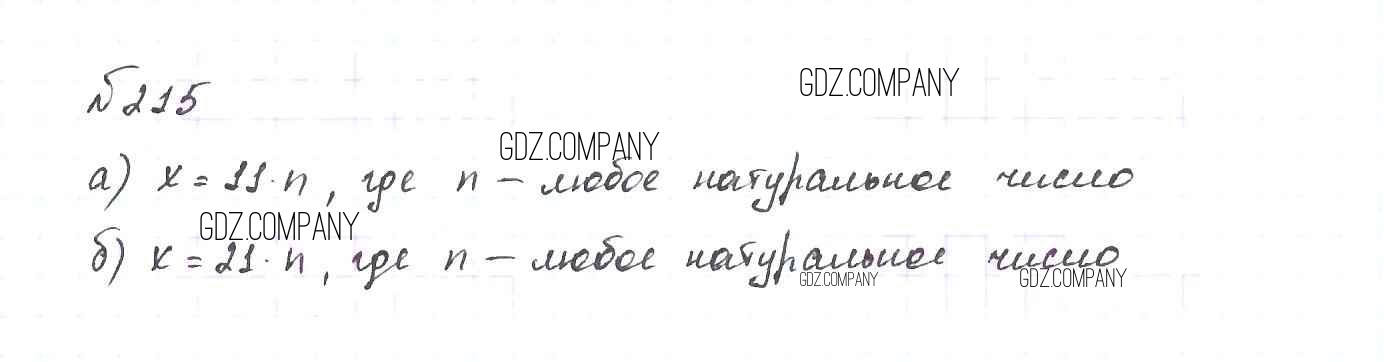 №215
GDZ.COMPANY
GDZ.COMPANY
а) x = 11·n, где n – любое натуральное число
GDZ.COMPANY
б) x = 21·n, где n – любое натуральное число
GDZ.COMPANY
GDZ.COMPANY